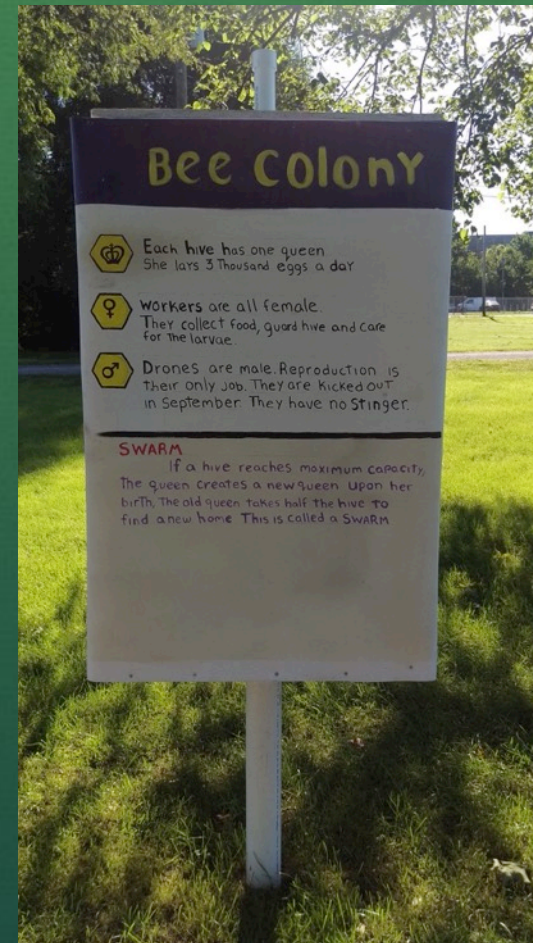 Bee Colony
Each hive has one queen
She lays 3 Thousand eggs a day
workers are all female.
They collect food, guard hive and care
for The larvae.
Drones are male. Reproduction is
their only job. They are kicked out
in September. They have no Stinger.
SWARM
If a hive reaches maximum capacity,
The queen creates a new queen upon her
birTh, The old queen takes half the hive To
find a new home This is called a SWARM